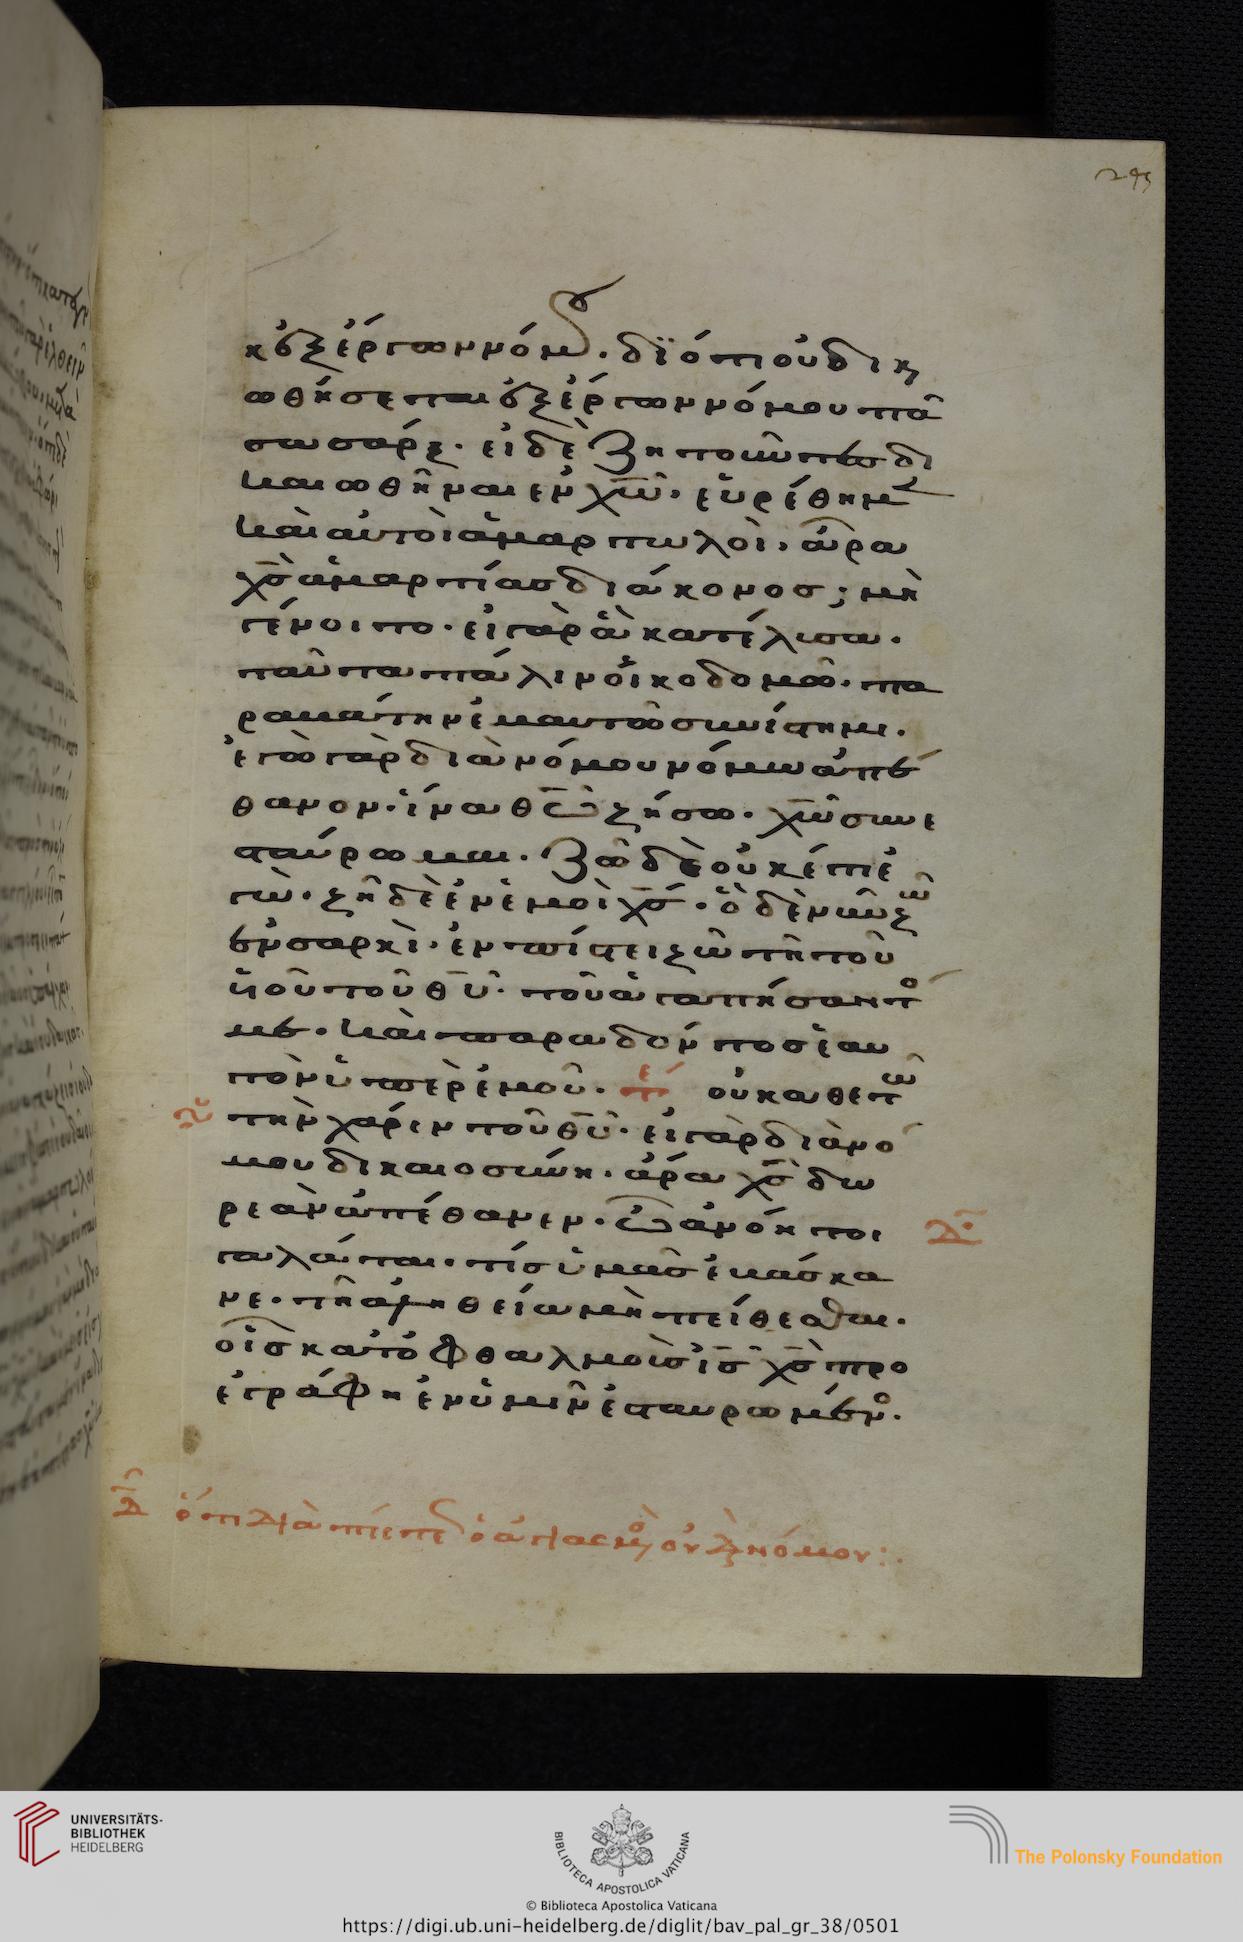 245
κ ἐξ ἔργων νόμου. διότι οὐ δικ
ωθήσεται ἐξ ἔργων νόμου πᾶ
σα σάρξ. εἰ δὲ ζητοῦντες δι
καιωθῆναι ἐν χω̅. εὑρέθημεν
καὶ αὐτοὶ ἁμαρτωλοὶ. ἆρα
χς̅ ἁμαρτίας διάκονος; μὴ
γένοιτο. εἰ γὰρ ἃ κατέλυσα.
ταῦτα πάλιν οἰκοδομῶ. πα
ραβάτην ἐμαυτῶ συνίστημι.
ἐγὼ γὰρ διὰ νόμου νόμω ἀπέ
θανον. ἵνα θω̅ ζήσω. χω̅ συνε
σταύρωμαι. ζῶ δὲ οὐκέτι ἐ
γὼ. ζῆ δὲ ἐν ἐμοὶ χς̅. ὃ δὲ νῦν ζῶ
ἐν σαρκὶ. ἐν πίστει ζῶ τῆ τοῦ
υἱοῦ τοῦ θυ̅. τοῦ ἀγαπήσαντός
με. καὶ παραδόντος ἑαυ
τὸν ὑπὲρ ἐμοῦ. τε οὐκ ἀθετῶ
τὴν χάριν τοῦ θυ̅. εἰ γὰρ διὰ νό
μου δικαιοσύνη. ἄρα χς̅ δω
ρεὰν ἀπέθανεν. ὦ ἀνόητοι
γαλάται. τίς ὑμᾶς ἐβάσκα
νε. τῆ ἀληθεία μὴ πείθεσθαι.
οἷς κατ ὀφθαλμοὺς ις̅ χς̅ προ
εγράφη ἐν ὑμῖν ἐσταυρωμένος.
Δ ὅτι διὰ πίστεως ὁ ἁγιασμὸς οὐ διὰ νόμου:.
UNIVERSITÄTS-
BIBLIOTHEK
HEIDELBERG
BIBLIOTECA APOSTOLICA VATICANA
The Polonsky Foundation
© Biblioteca Apostolica Vaticana
https://digi.ub.uni-heidelberg.de/diglit/bav_pal_gr_38/0501